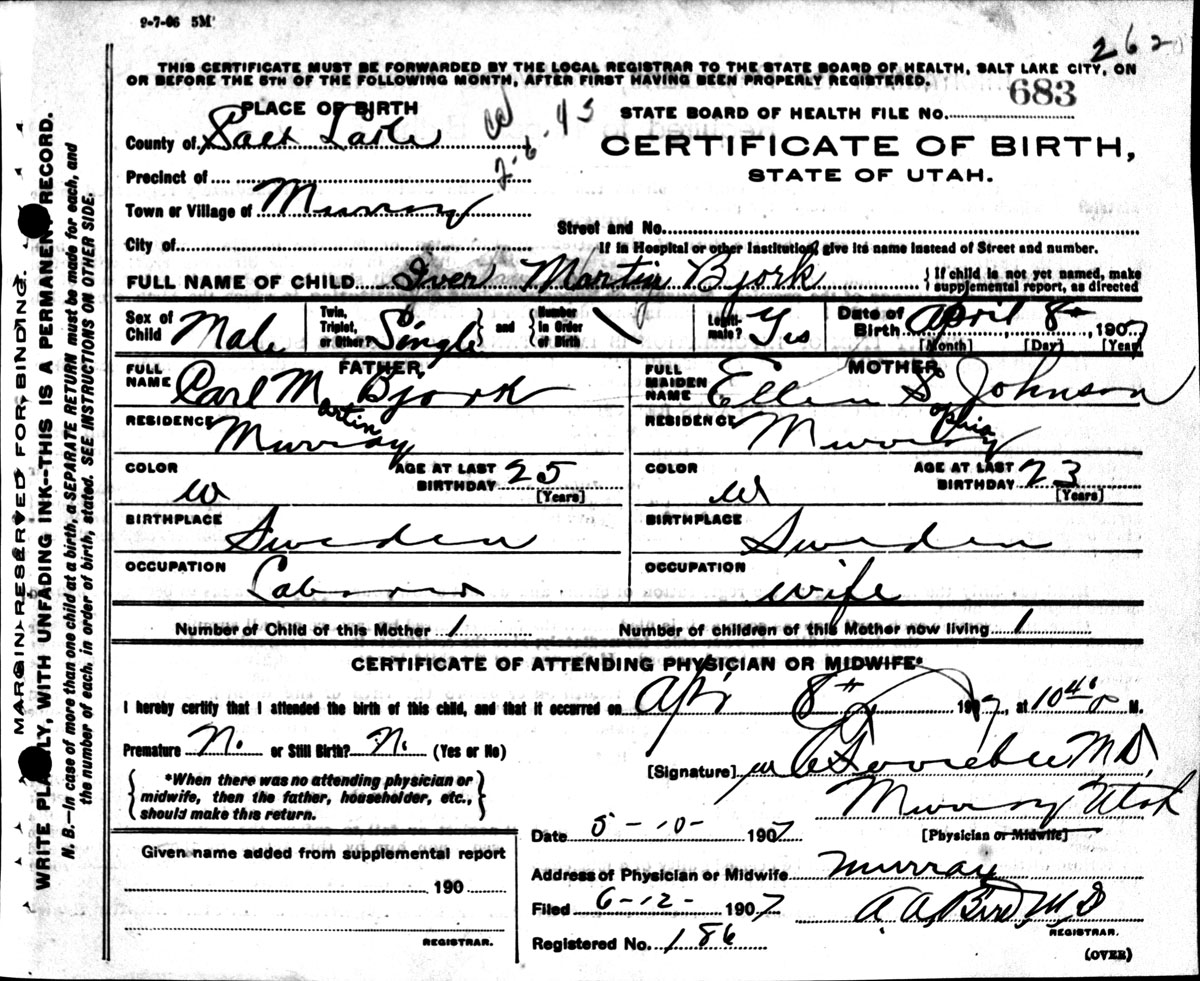 9-7-06 5M
262
THIS CERTIFICATE MUST BE FORWARDED BY THE LOCAL REGISTRAR TO THE STATE BOARD OF HEALTH, SALT LAKE CITY, ON
OR BEFORE THE 5TH OF THE FOLLOWING MONTH, AFTER FIRST HAVING BEEN PROPERLY REGISTERED.
PLACE OF BIRTH
STATE BOARD OF HEALTH FILE NO. 683
County of Salt Lake
2-6-43
CERTIFICATE OF BIRTH,
STATE OF UTAH.
Precinct of
Town or Village of Murray
Street and No.
City of
If in Hospital or other Institution, give its name instead of Street and number.
FULL NAME OF CHILD Iver Martin Bjork { If child is not yet named, make
supplemental report, as directed
Sex of Child Male Twin, Triplet, or Other? Single } and { Number in Order of Birth \ Legiti-mate? Yes Date of Birth April 8th, 1907
[Month] [Day] [Year]
FATHER
FULL NAME Carl Martin Bjork
RESIDENCE Murray
COLOR W AGE AT LAST BIRTHDAY 25 [Years]
BIRTHPLACE Sweden
OCCUPATION Laborer
MOTHER
FULL MAIDEN NAME Ellen Sophia Johnson
RESIDENCE Murray
COLOR W AGE AT LAST BIRTHDAY 23 [Years]
BIRTHPLACE Sweden
OCCUPATION wife
Number of Child of this Mother 1 Number of children of this Mother now living 1
CERTIFICATE OF ATTENDING PHYSICIAN OR MIDWIFE*
I hereby certify that I attended the birth of this child, and that it occurred on Apr 8th 1907, at 10 40 P M.
Premature N. or Still Birth? N. (Yes or No)
[Signature] M.D.
*When there was no attending physician or
midwife, then the father, householder, etc.,
should make this return.
Murray Utah
Date 5-10- 1907 [Physician or Midwife]
Given name added from supplemental report
190
REGISTRAR.
Address of Physician or Midwife Murray
Filed 6-12- 1907 A. A. Bird, M D
REGISTRAR.
Registered No. 186
(OVER)
MARGIN RESERVED FOR BINDING.
WRITE PLAINLY, WITH UNFADING INK--THIS IS A PERMANENT RECORD.
N. B.—In case of more than one child at a birth, a SEPARATE RETURN must be made for each, and
the number of each, in order of birth, stated. SEE INSTRUCTIONS ON OTHER SIDE.